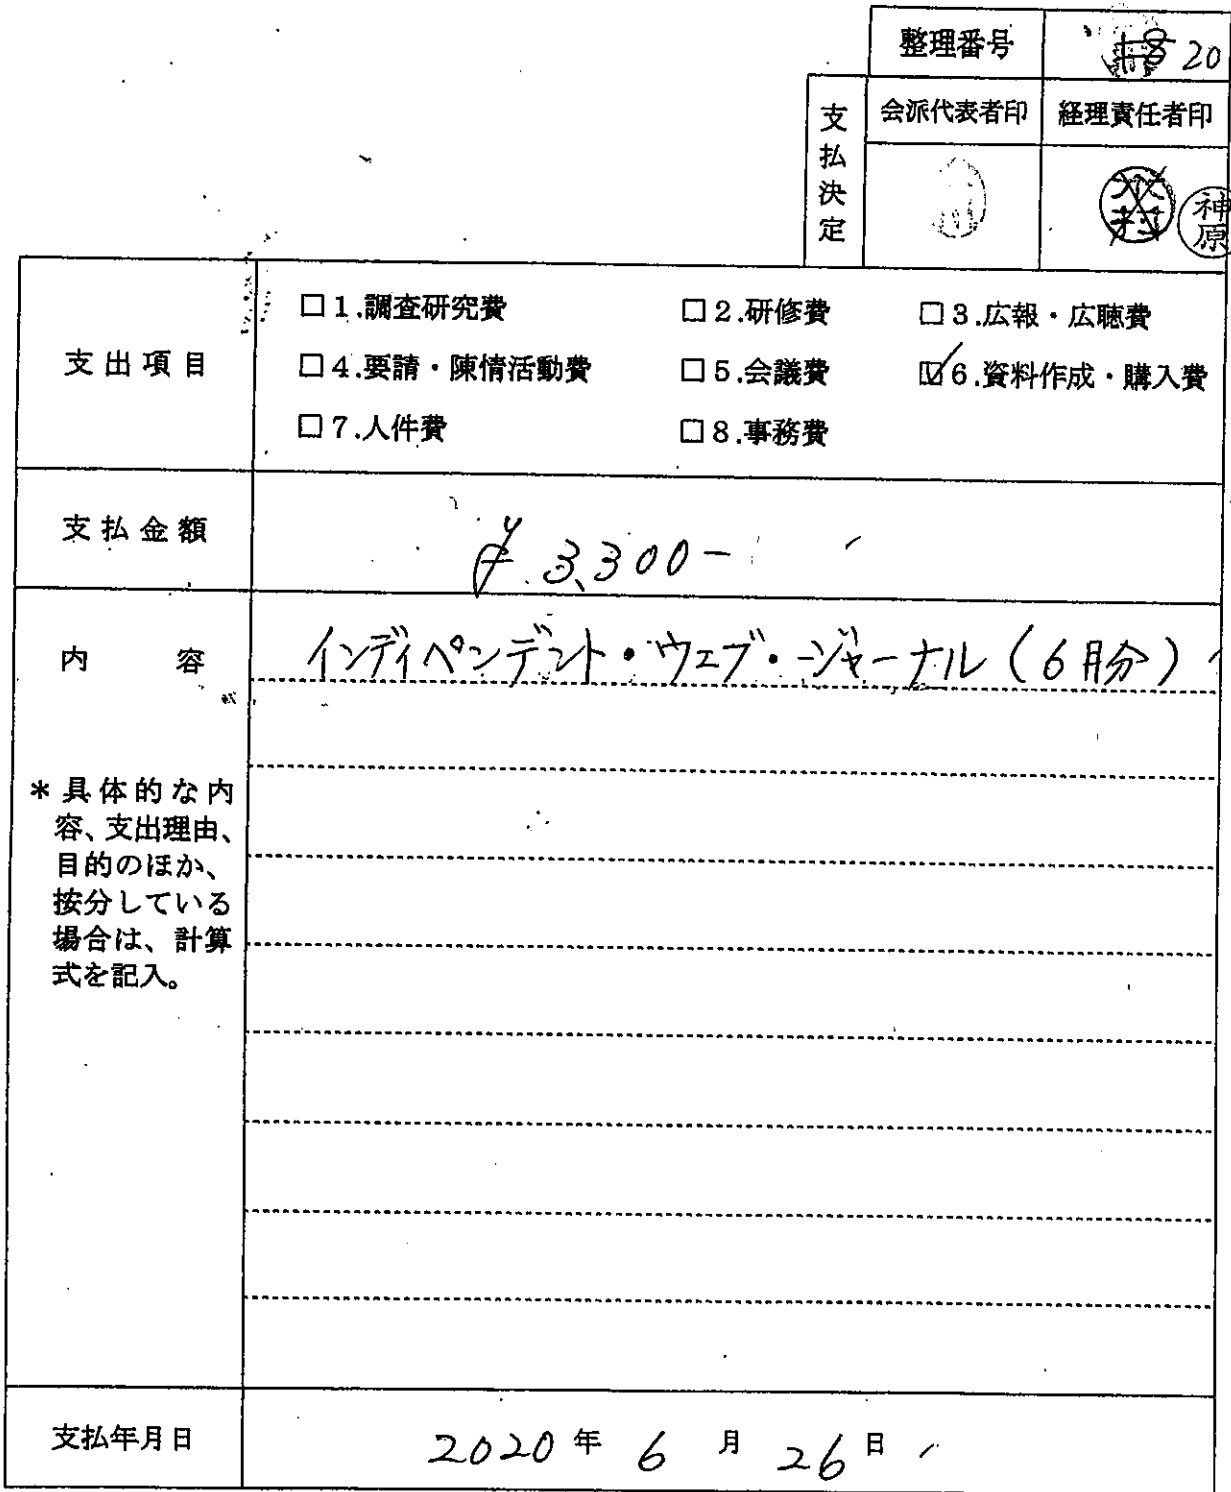 整理番号 20
支払決定
会派代表者印 経理責任者印
神原
支出項目
□1.調査研究費 □2.研修費 □3.広報・広聴費
□4.要請・陳情活動費 □5.会議費 ☑6.資料作成・購入費
□7.人件費 □8.事務費
支払金額 ¥3,300-
内容 インディペンデント・ウェブ・ジャーナル(6月分)
*具体的な内
容、支出理由、
目的のほか、
按分している
場合は、計算
式を記入。
支払年月日 2020年6月26日